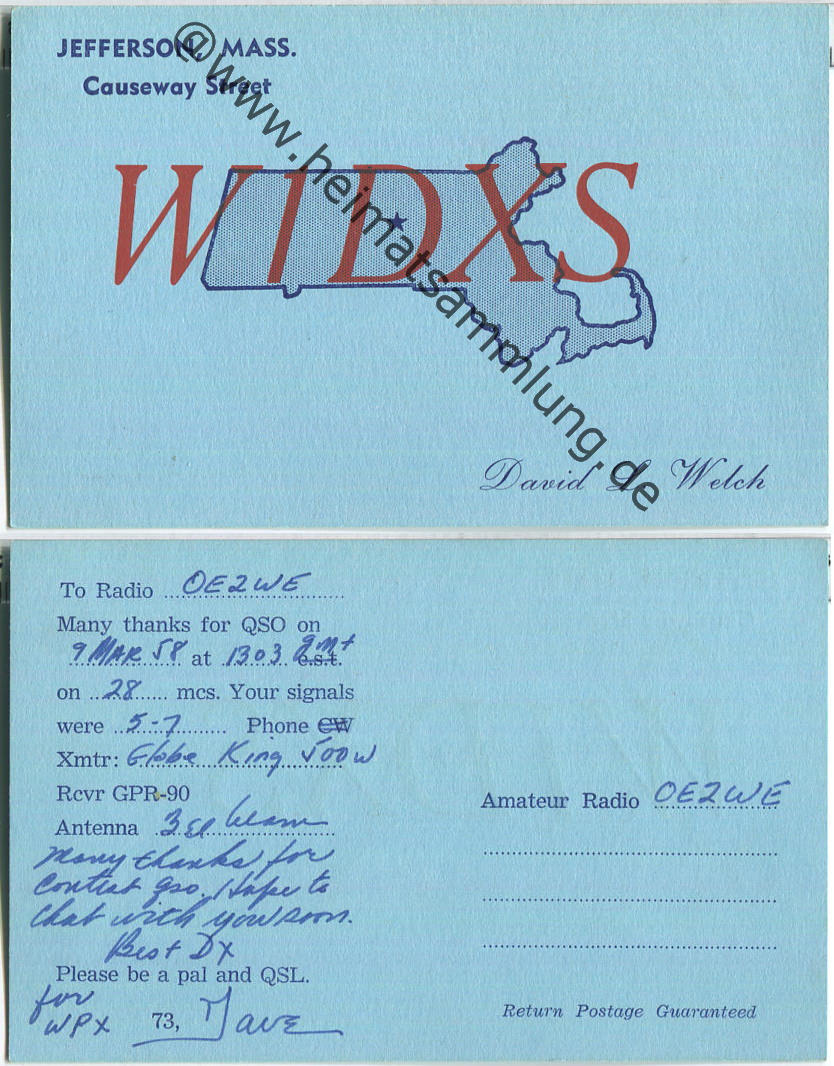 JEFFERSON, MASS.
Causeway Street
W1DXS
David L. Welch
@www.heimatsammlung.de
To Radio OE2WE
Many thanks for QSO on
9 MAR 58 at 1303 gmt e.s.t.
on 28 mcs. Your signals
were 5-7 Phone CW
Xmtr: Globe King 500W
Rcvr GPR-90
Antenna 3 el beam
Many thanks for
Contest qso. Hope to
chat with you soon.
Best DX
Please be a pal and QSL.
for
WPX 73, Dave
Amateur Radio OE2WE
Return Postage Guaranteed